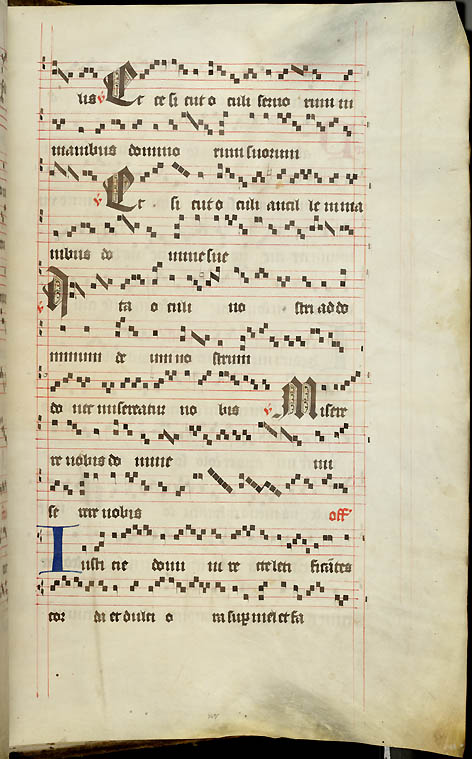 lis ℣ Et ce si cut o culi servo rum in
manibus domino rum suorum
℣ Et si cut o culi ancil le in ma
nibus do mine sue
℣ Ita o culi no stri ad do
minum de um no strum
do nec misereatur no bis ℣ Misere
re nobis do mine mi
se rere nobis off
Iusti cie domi ni re cte leti ficātes
cor da et dulci o ra sup mel et fa